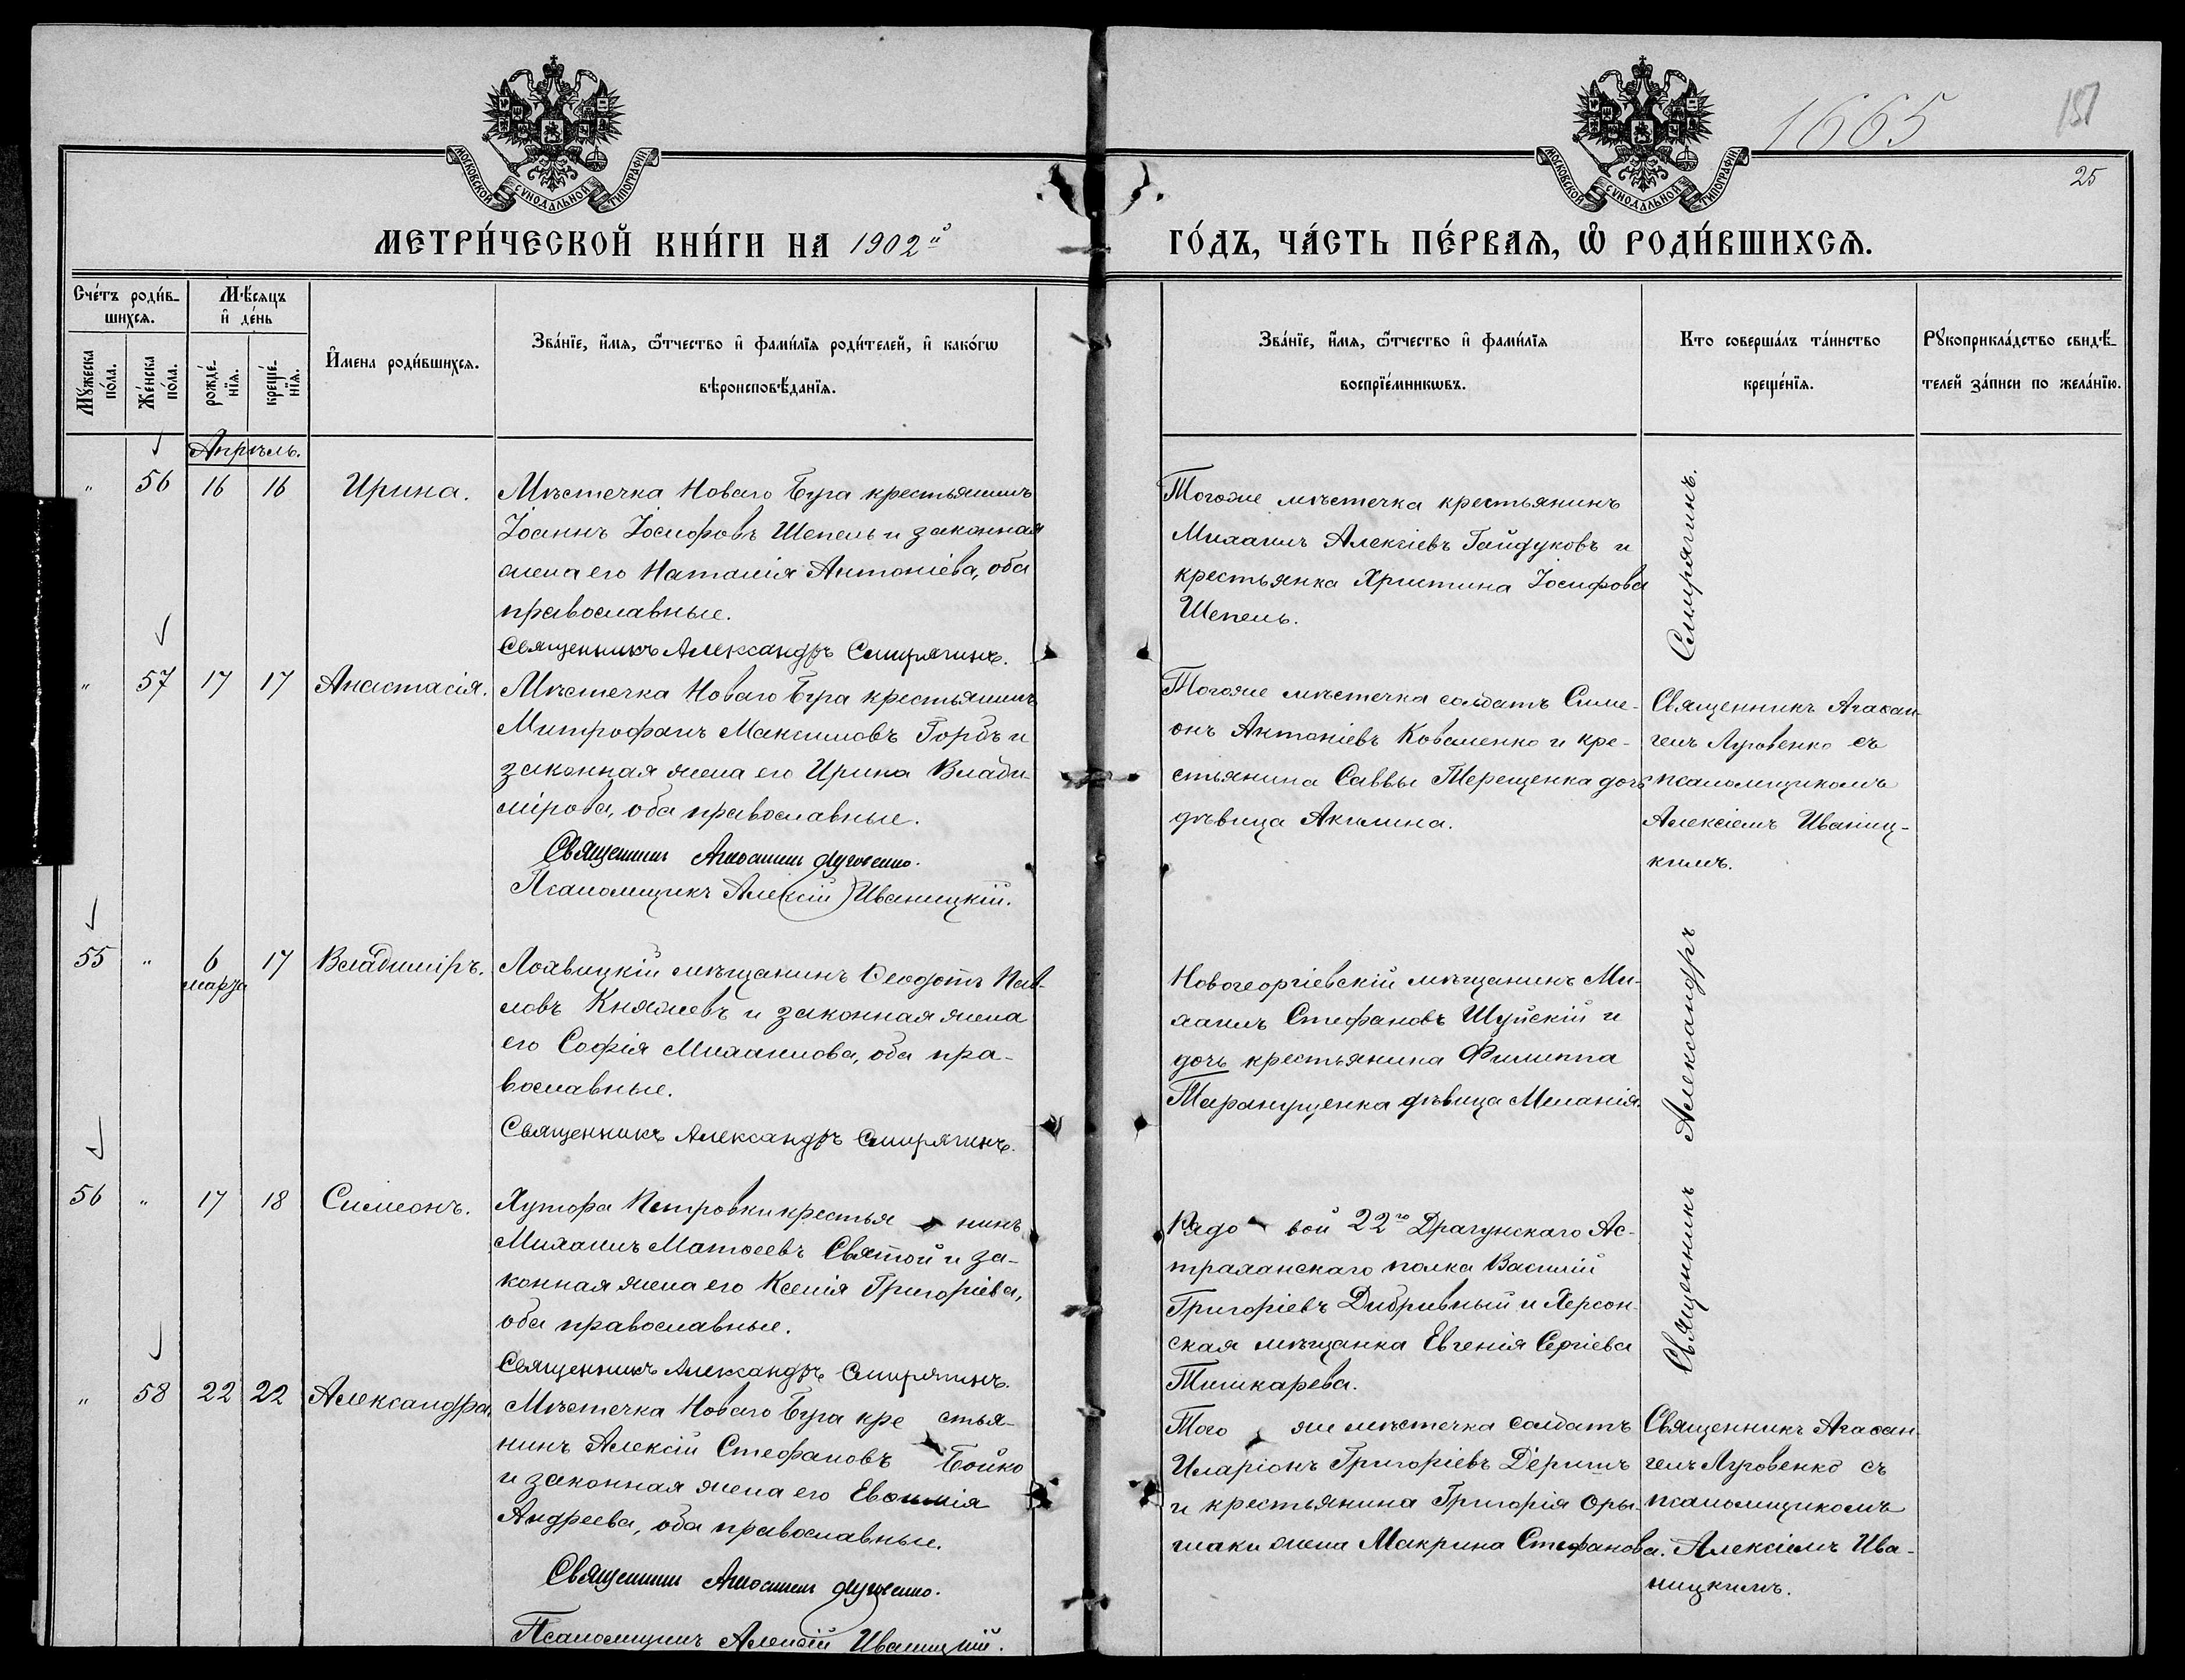 1665
151
25
МОСКОВСКОЙ СѴНОДАЛЬНОЙ ТИПОГРАФІИ
МОСКОВСКОЙ СѴНОДАЛЬНОЙ ТИПОГРАФІИ
МЕТРИ́ЧЕСКОЙ КНИ́ГИ НА 1902й
ГО́ДЪ, ЧА́СТЬ ПЕ́РВАѦ, Ѿ РОДИ́ВШИХСѦ.
Сче́тъ роди́в-
шихсѧ.
Мꙋжеска по́ла.
Же́нска по́ла.
Мѣ́сѧцъ и҆ де́нь
рожде́-нїѧ.
креще́-нїѧ.
И҆мена роди́вшихсѧ.
Зва́нїе, и҆́мѧ, ѻ҆́тчество и҆ фами́лїѧ роди́телей, и҆ како́гѡ
вѣроисповѣ́данїѧ.
Зва́нїе, и҆́мѧ, ѻ҆́тчество и҆ фами́лїѧ
воспрїе́мникѡвъ.
Кто соверша́лъ та́инство
креще́нїѧ.
Рꙋкоприкла́дство свидѣ́-
телей за́писи по жела́нїю.
Апрѣль.
" 56 16 16 Ирина.
Мѣстечка Новаго Буга крестьянинъ
Іоаннъ Іосифовъ Шепель и законная
жена его Наталія Антоніева, оба
православные.
Священникъ Александръ Смирягинъ.
Тогоже мѣстечка крестьянинъ
Михаилъ Алексіевъ Гайдуковъ и
крестьянка Христина Іосифова
Шепель.
" 57 17 17 Анастасія.
Мѣстечка Новаго Буга крестьянинъ
Митрофанъ Максимовъ Горбъ и
законная жена его Ирина Влади-
мірова, оба православные.
Священникъ Агаѳангелъ Луговенко.
Псаломщикъ Алексій Иваницкій.
Тогоже мѣстечка солдатъ Симе-
онъ Антоніевъ Коваленко и кре-
стьянина Саввы Терещенка дочь
дѣвица Акилина.
Священникъ Агаѳан-
гелъ Луговенко съ
псаломщикомъ
Алексіемъ Иваниц-
кимъ.
55 " 6 марта 17 Владиміръ.
Лохвицкій мѣщанинъ Ѳеодотъ Пав-
ловъ Княжевъ и законная жена
его Софія Михаилова, оба пра-
вославные.
Священникъ Александръ Смирягинъ.
Новогеоргіевскій мѣщанинъ Ми-
хаилъ Стефановъ Шуйскій и
дочь крестьянина Филиппа
Таранущенка дѣвица Меланія.
Священникъ Александръ Смирягинъ.
56 " 17 18 Симеонъ.
Хутора Петровки крестья нинъ
Михаилъ Матѳеевъ Святой и за-
конная жена его Ксенія Григоріева,
оба православные.
Священникъ Александръ Смирягинъ.
Рядо вой 22го Драгунскаго Ас-
траханскаго полка Василій
Григоріевъ Дибривный и Херсон-
ская мѣщанка Евгенія Сергіева
Тишкарева.
" 58 22 22 Александра
Мѣстечка Новаго Буга кре стья-
нинъ Алексій Стефановъ Бойко
и законная жена его Евѳимія
Андреева, оба православные.
Священникъ Агаѳангелъ Луговенко.
Псаломщикъ Алексій Иваницкій.
Того же мѣстечка солдатъ
Иларіонъ Григоріевъ Деришъ
и крестьянина Григорія Оры-
шаки жена Макрина Стефанова.
Священникъ Агаѳан-
гелъ Луговенко съ
псаломщикомъ
Алексіемъ Ива-
ницкимъ.